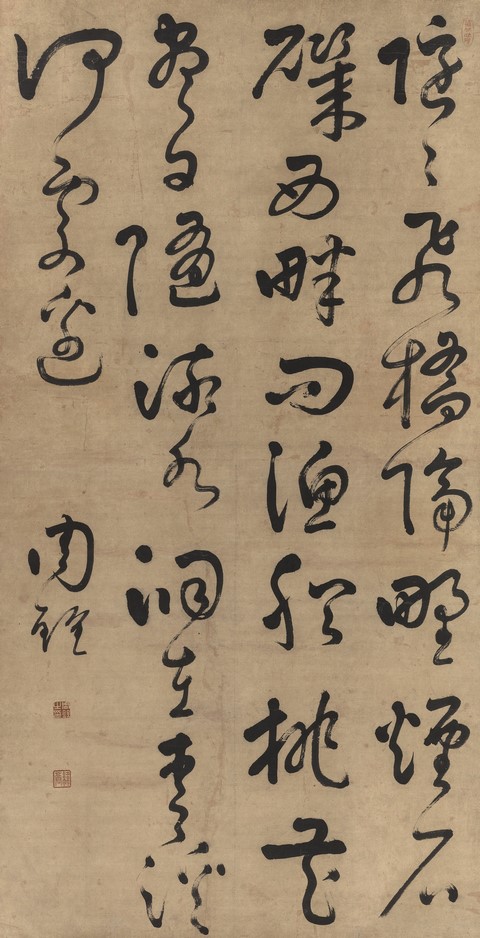 隱〻飛橋隔野煙石
磯西畔問漁船桃花
盡日隨流水洞在青溪
何處邊
周